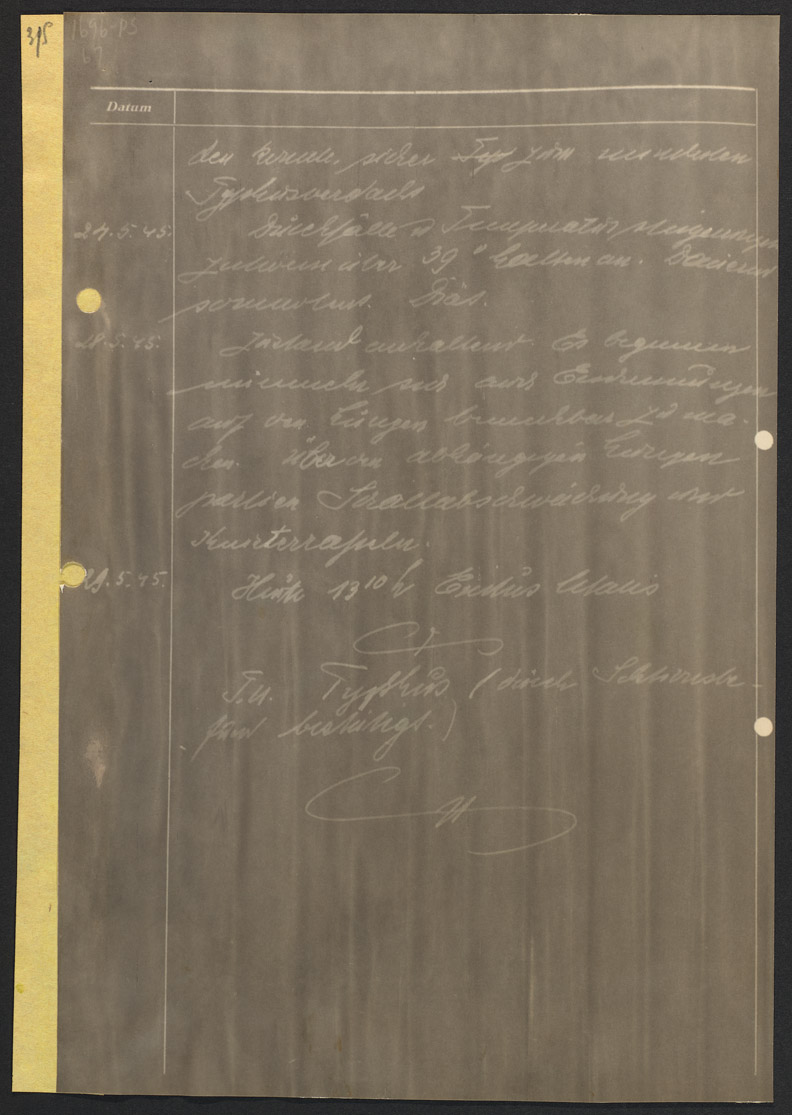 315
1696-PS
Datum
den konnte, sicher Typ zum mindesten
Typhusverdacht
24.5.45. Durchfälle u Temperatursteigerungen
zuweilen über 39° halten an. Dauernd
somnolent. Diät.
28.5.45. Zustand anhaltend. Es beginnen
nunmehr sich auch Entzündungen
auf den Lungen bemerkbar zu ma-
chen. über den abhängigen Lungen
partien Schallabschwächung und
Knisterrasseln.
29.5.45. Heute 13 10 h Exitus letalis
T.U. Typhus (durch Sektionsbe-
fund bestätigt.)